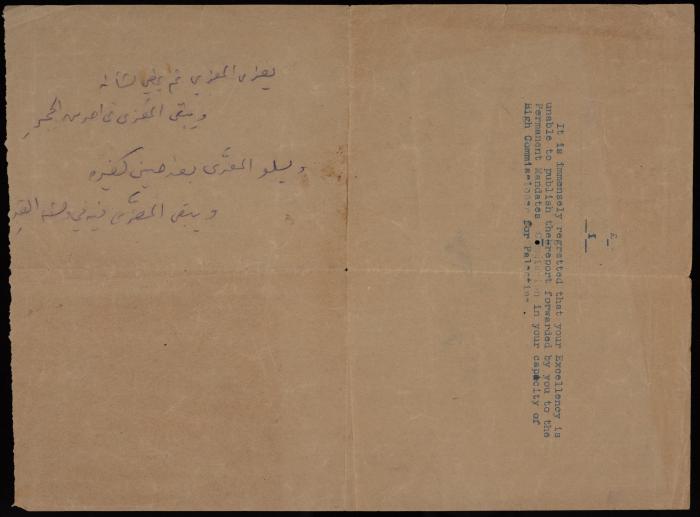 يعزى المعزي ثم يمضي لشأنه
ويبقى المعزى في احر من الجمر
ويسلو المعزَّى بعد حين كغيره
ويبقى المعزَّى فيه في وحشة القبر
_I_
It is immensely regretted that your Excellency is
unable to publish the report forwarded by you to the
Permanent Mandates Commission in your capacity of
High Commissioner for Palestine .